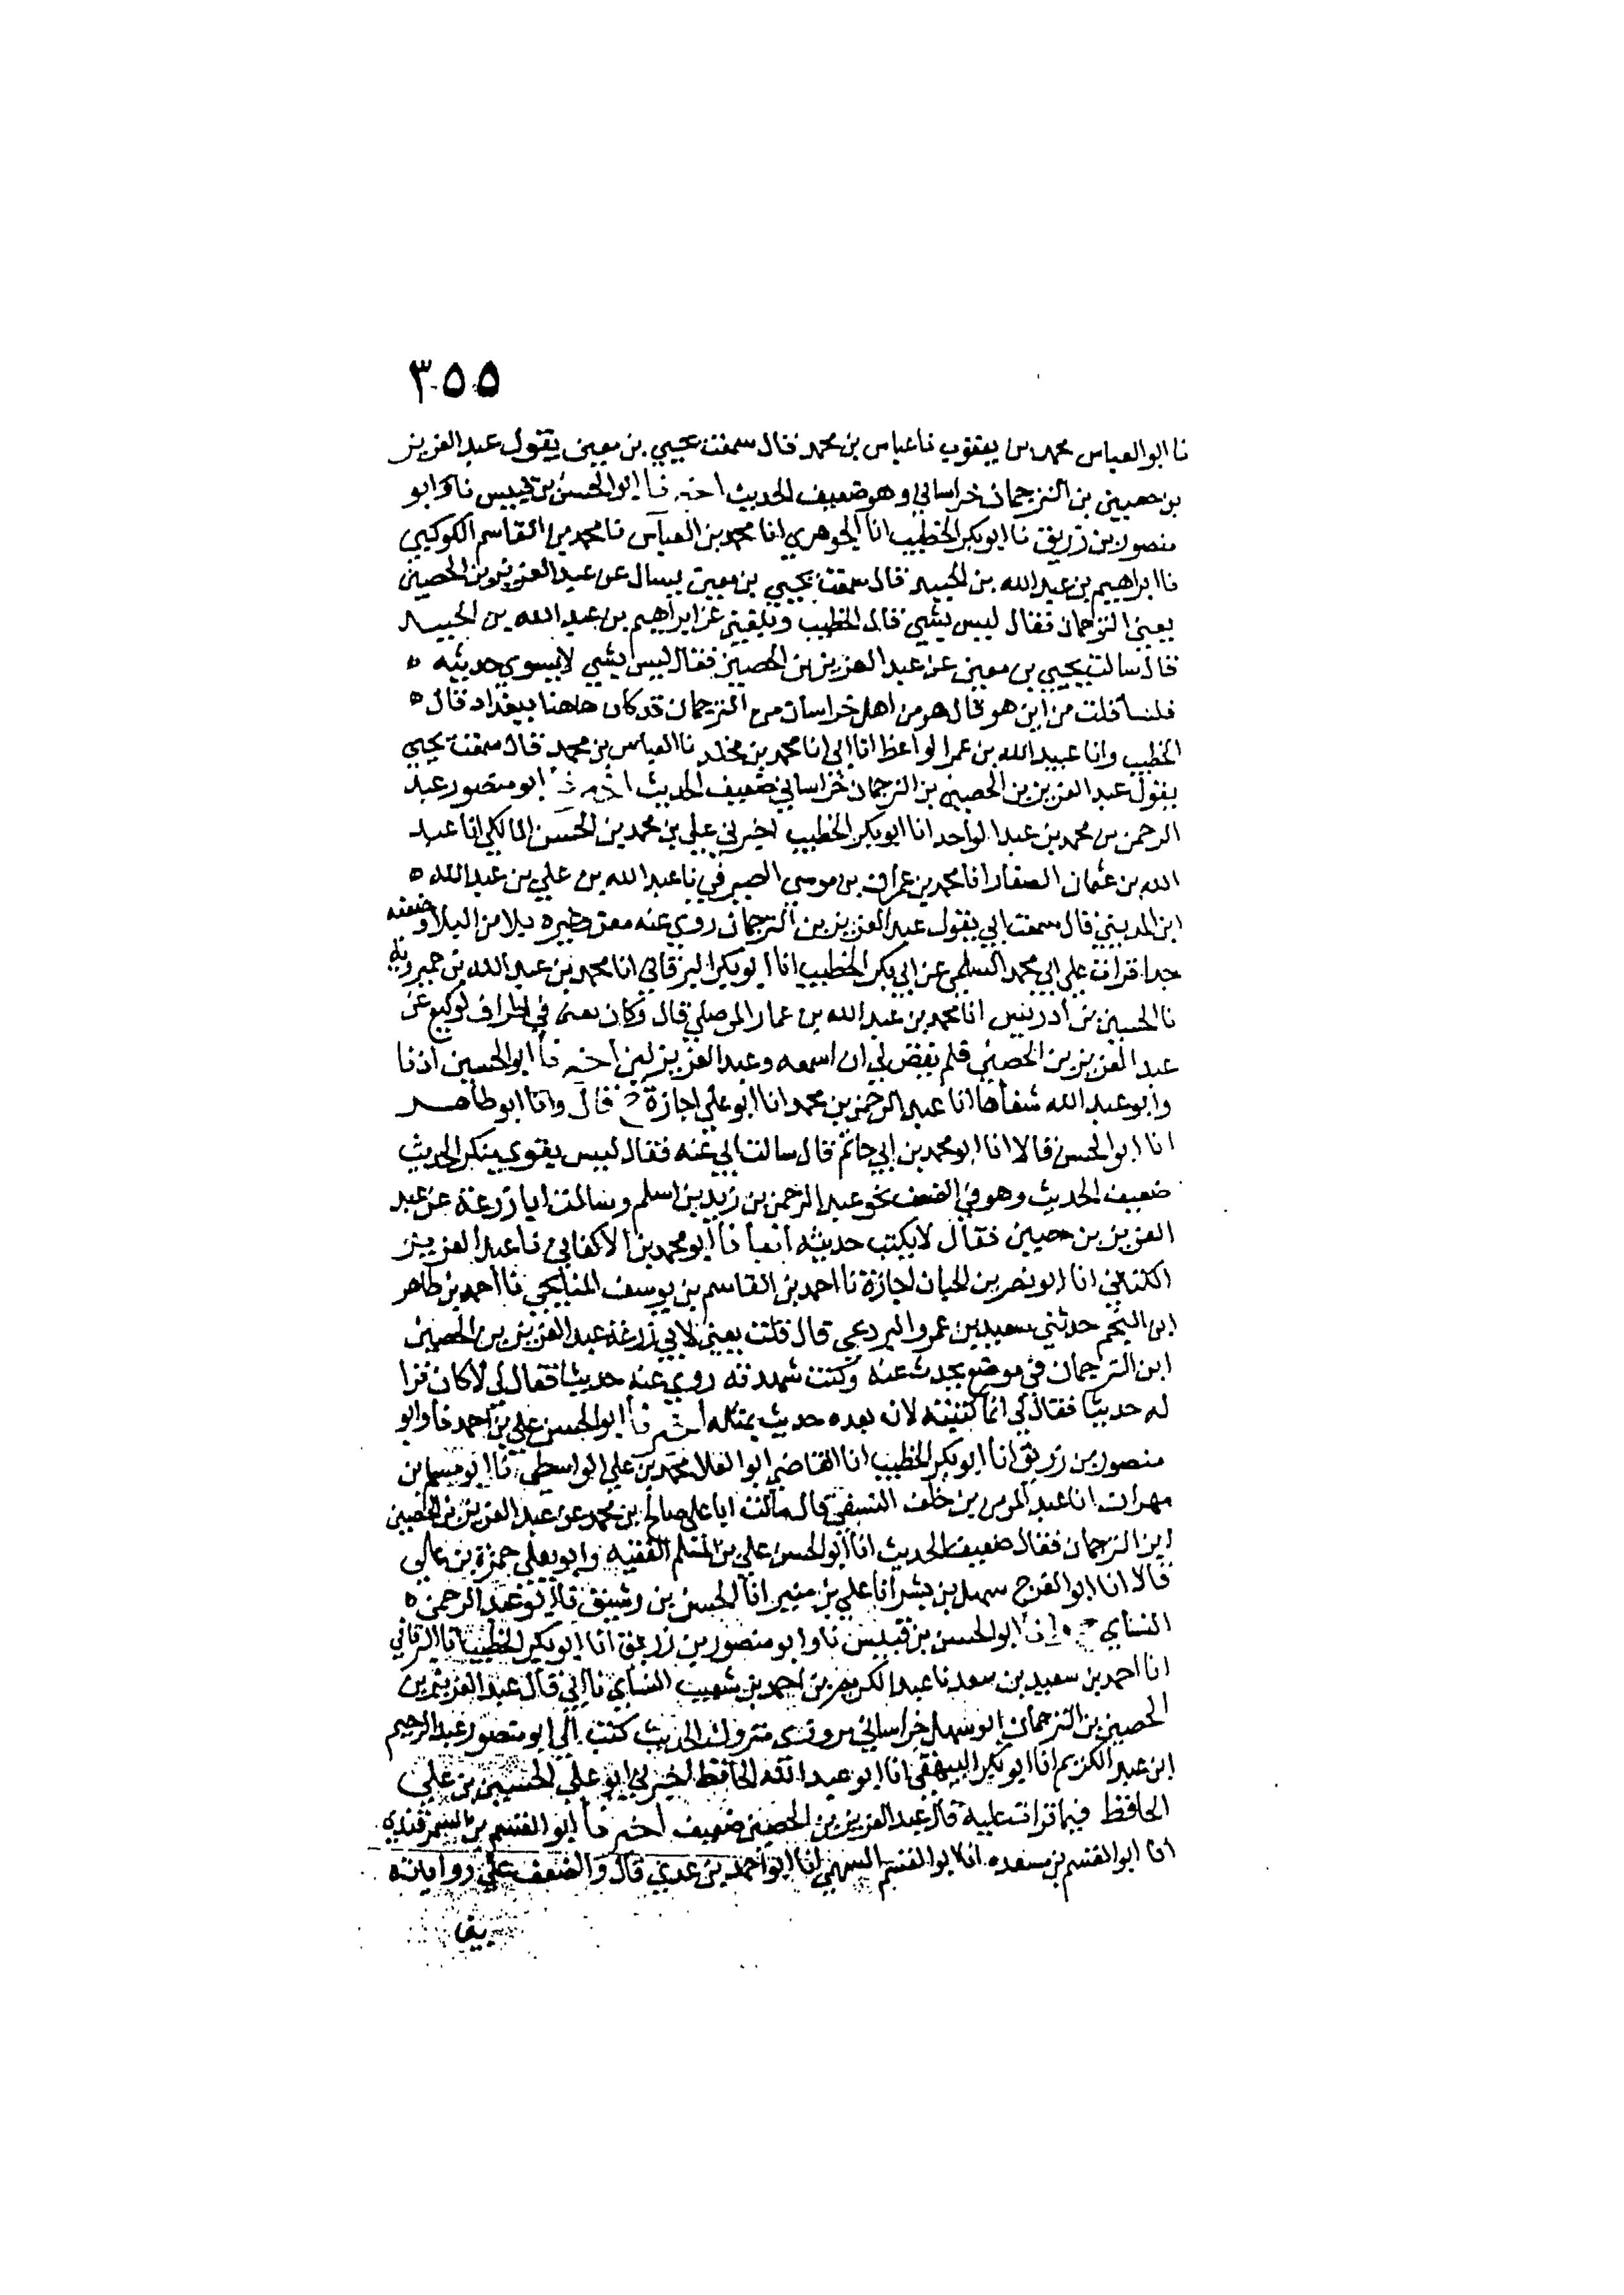 ٣٥٥
نا ابو العباس محمد بن يعقوب نا عباس بن محمد قال سمعت يحيي بن معين يقول عبد العزيز
بن حصين بن الترجمان خراساني وهو ضعيف الحديث اخبرنا ابو الحسن بن قبيس نا وابو
منصور بن زريق نا ابو بكر الخطيب انا الجوهري انا محمد بن العباس نا محمد بن القاسم الكوكبي
نا ابراهيم بن عبد الله بن الجنيد قال سمعت يحيي بن معين يسال عن عبد العزيز بن الحصين
يعني الترجمان فقال ليس بشي قال الخطيب عن ابراهيم بن عبد الله بن الجنيد
قال سالت يحيي بن معين عن عبد العزيز بن الحصين فقال ليس بشي لا يسوي حديثه ٥
فلسا قلت من اين هو قال هو من اهل خراسان من الترجمان قد كان هاهنا ببغداد قال ٥
الخطيب وانا عبيد الله بن عمر الواعظ انا ابي انا محمد بن مخلد نا العباس بن محمد قال سمعت يحيي
يقول عبد العزيز بن الحصين بن الترجمان خراساني ضعيف الحديث اخبرنا ابو منصور عبد
الرحمن بن محمد بن عبد الواحد انا ابو بكر الخطيب اخبرني علي بن محمد بن الحسن المالكي انا عبد
الله بن عثمان الصفار انا محمد بن عمران بن موسي الصيرفي نا عبد الله بن علي بن عبد الله ٥
ابن المديني قال سمعت ابي يقول عبد العزيز بن الترجمان روي عنه معن وغيره بلا من البلا وضعفه
جدا قرات علي ابي محمد السلمي عن ابي بكر الخطيب انا ابو بكر البرقاني انا محمد بن عبد الله بن خميرويه
نا الحسين بن ادريس انا محمد بن عبد الله بن عمار الموصلي قال وكان معنا في اطراف لوكيع عن
عبد العزيز بن الحصين فلم يقض لي ان اسمعه وعبد العزيز لين اخبرنا ابو الحسين اذنا
وابو عبد الله شفاها انا عبد الرحمن بن محمد انا ابو علي اجازة ح قال وانا ابو طاهر
انا ابو الحسن قالا انا ابو محمد بن ابي حاتم قال سالت ابي عنه فقال ليس بقوي منكر الحديث
ضعيف الحديث وهو في الضعف نحو عبد الرحمن بن زيد بن اسلم وسالت ابا زرعة عن عبد
العزيز بن حصين فقال لا يكتب حديثه انبانا ابو محمد بن الاكفاني نا عبد العزيز
الكتاني انا ابو نصر بن الجبان اجازة نا احمد بن القاسم بن يوسف الميانجي نا احمد بن طاهر
ابن النجم حدثني سعيد بن عمرو البردعي قال قلت يعني لابي زرعة عبد العزيز بن الحصين
ابن الترجمان في موضع يحدث عنه وكنت شهدته روي عنه حديثا فقال لي لا كان قرا
له حديثا فقال لي انما كتبته لان بعده حديث بمثله اخبرنا ابو الحسن علي بن احمد نا وابو
منصور بن زريق انا ابو بكر الخطيب انا القاضي ابو العلا محمد بن علي الواسطي نا ابو مسلم بن
مهران انا عبد المومن بن خلف النسفي قال سالت ابا علي صالح بن محمد عن عبد العزيز بن الحصين
ابن الترجمان فقال ضعيف الحديث انا ابو الحسن علي بن المسلم الفقيه وابو يعلي حمزة بن علي
قالا انا ابو الفرج سهل بن بشر انا علي بن منير انا الحسن بن رشيق نا ابو عبد الرحمن ٥
النساي ح وانا ابو الحسن بن قبيس نا وابو منصور بن زريق انا ابو بكر الخطيب انا البرقاني
انا احمد بن سعيد بن سعد نا عبد الكريم بن احمد بن شعيب النساي نا ابي قال عبد العزيز بن
الحصين بن الترجمان ابو سهل خراساني مروزي متروك الحديث كتب الي ابو منصور عبد الرحيم
ابن عبد الكريم انا ابو بكر البيهقي انا ابو عبد الله الحافظ اخبرني ابو علي الحسين بن علي
الحافظ فيما قرات عليه قال عبد العزيز بن الحصين ضعيف اخبرنا ابو القسم بن السمرقندي
انا ابو القسم بن مسعده انا ابو القسم السهمي انا ابو احمد بن عدي قال والضعف علي رواياته
بين